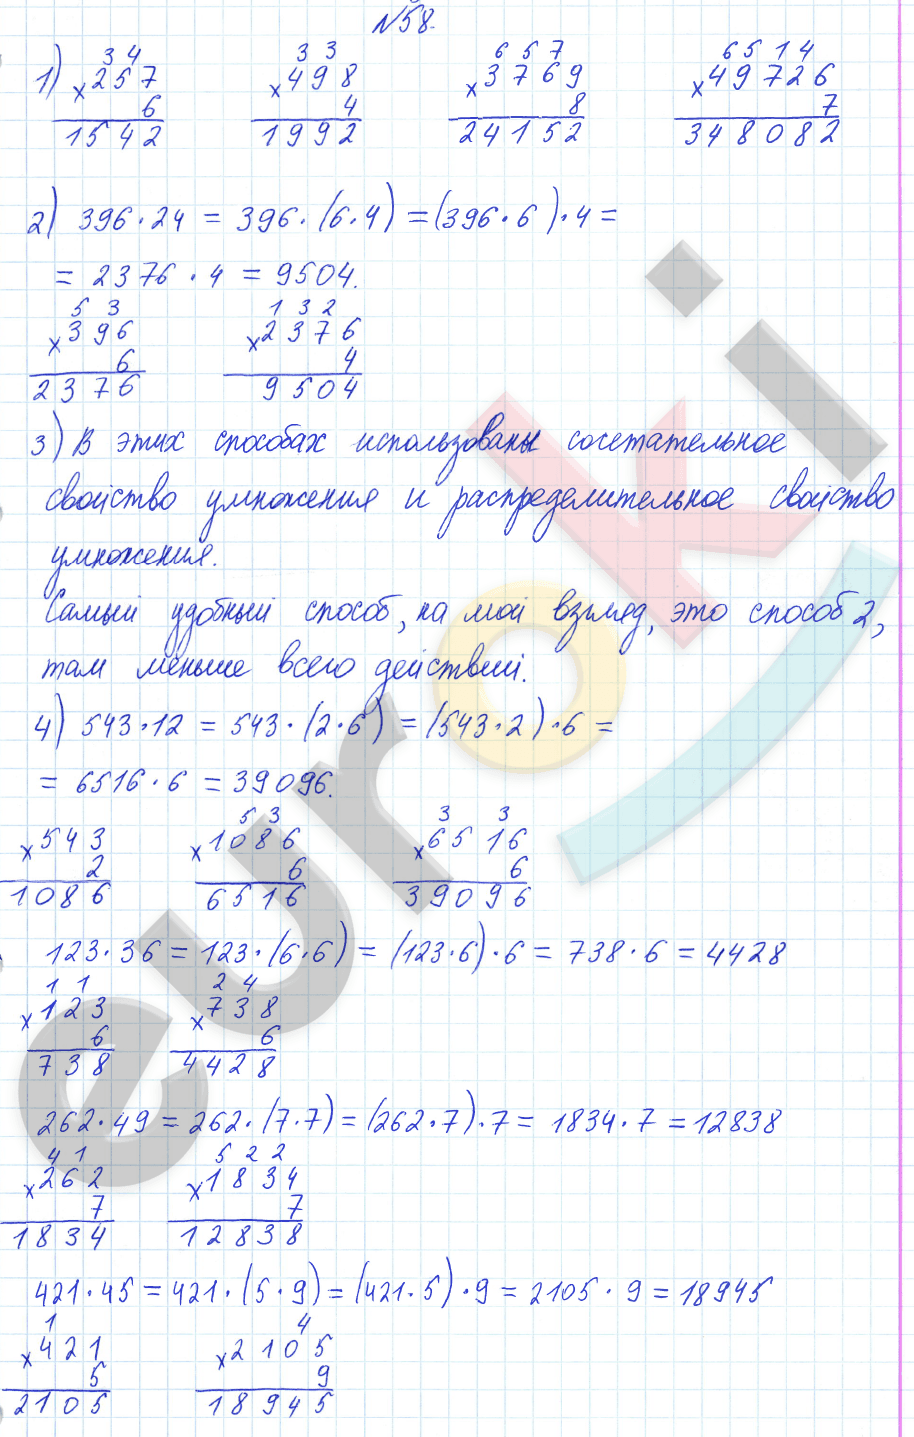 №58.
1) 3 4   3 3   6 5 7   6 5 1 4
×257   ×498   ×3769   ×49726
6   4   8   7
1542   1992   24152   348082
2) 396·24 = 396·(6·4) = (396·6)·4 =
= 2376·4 = 9504.
5 3   1 3 2
×396   ×2376
6   4
2376   9504
3) В этих способах использованы сочетательное
свойство умножения и распределительное свойство
умножения.
Самый удобный способ, на мой взгляд, это способ 2,
там меньше всего действий.
4) 543·12 = 543·(2·6) = (543·2)·6 =
= 6516·6 = 39096.
5 3   3 3
×543   ×1086   ×6516
2   6   6
1086   6516   39096
123·36 = 123·(6·6) = (123·6)·6 = 738·6 = 4428
1 1   2 4
×123   ×738
6   6
738   4428
262·49 = 262·(7·7) = (262·7)·7 = 1834·7 = 12838
4 1   5 2 2
×262   ×1834
7   7
1834   12838
421·45 = 421·(5·9) = (421·5)·9 = 2105·9 = 18945
1   4
×421   ×2105
5   9
2105   18945
euroki